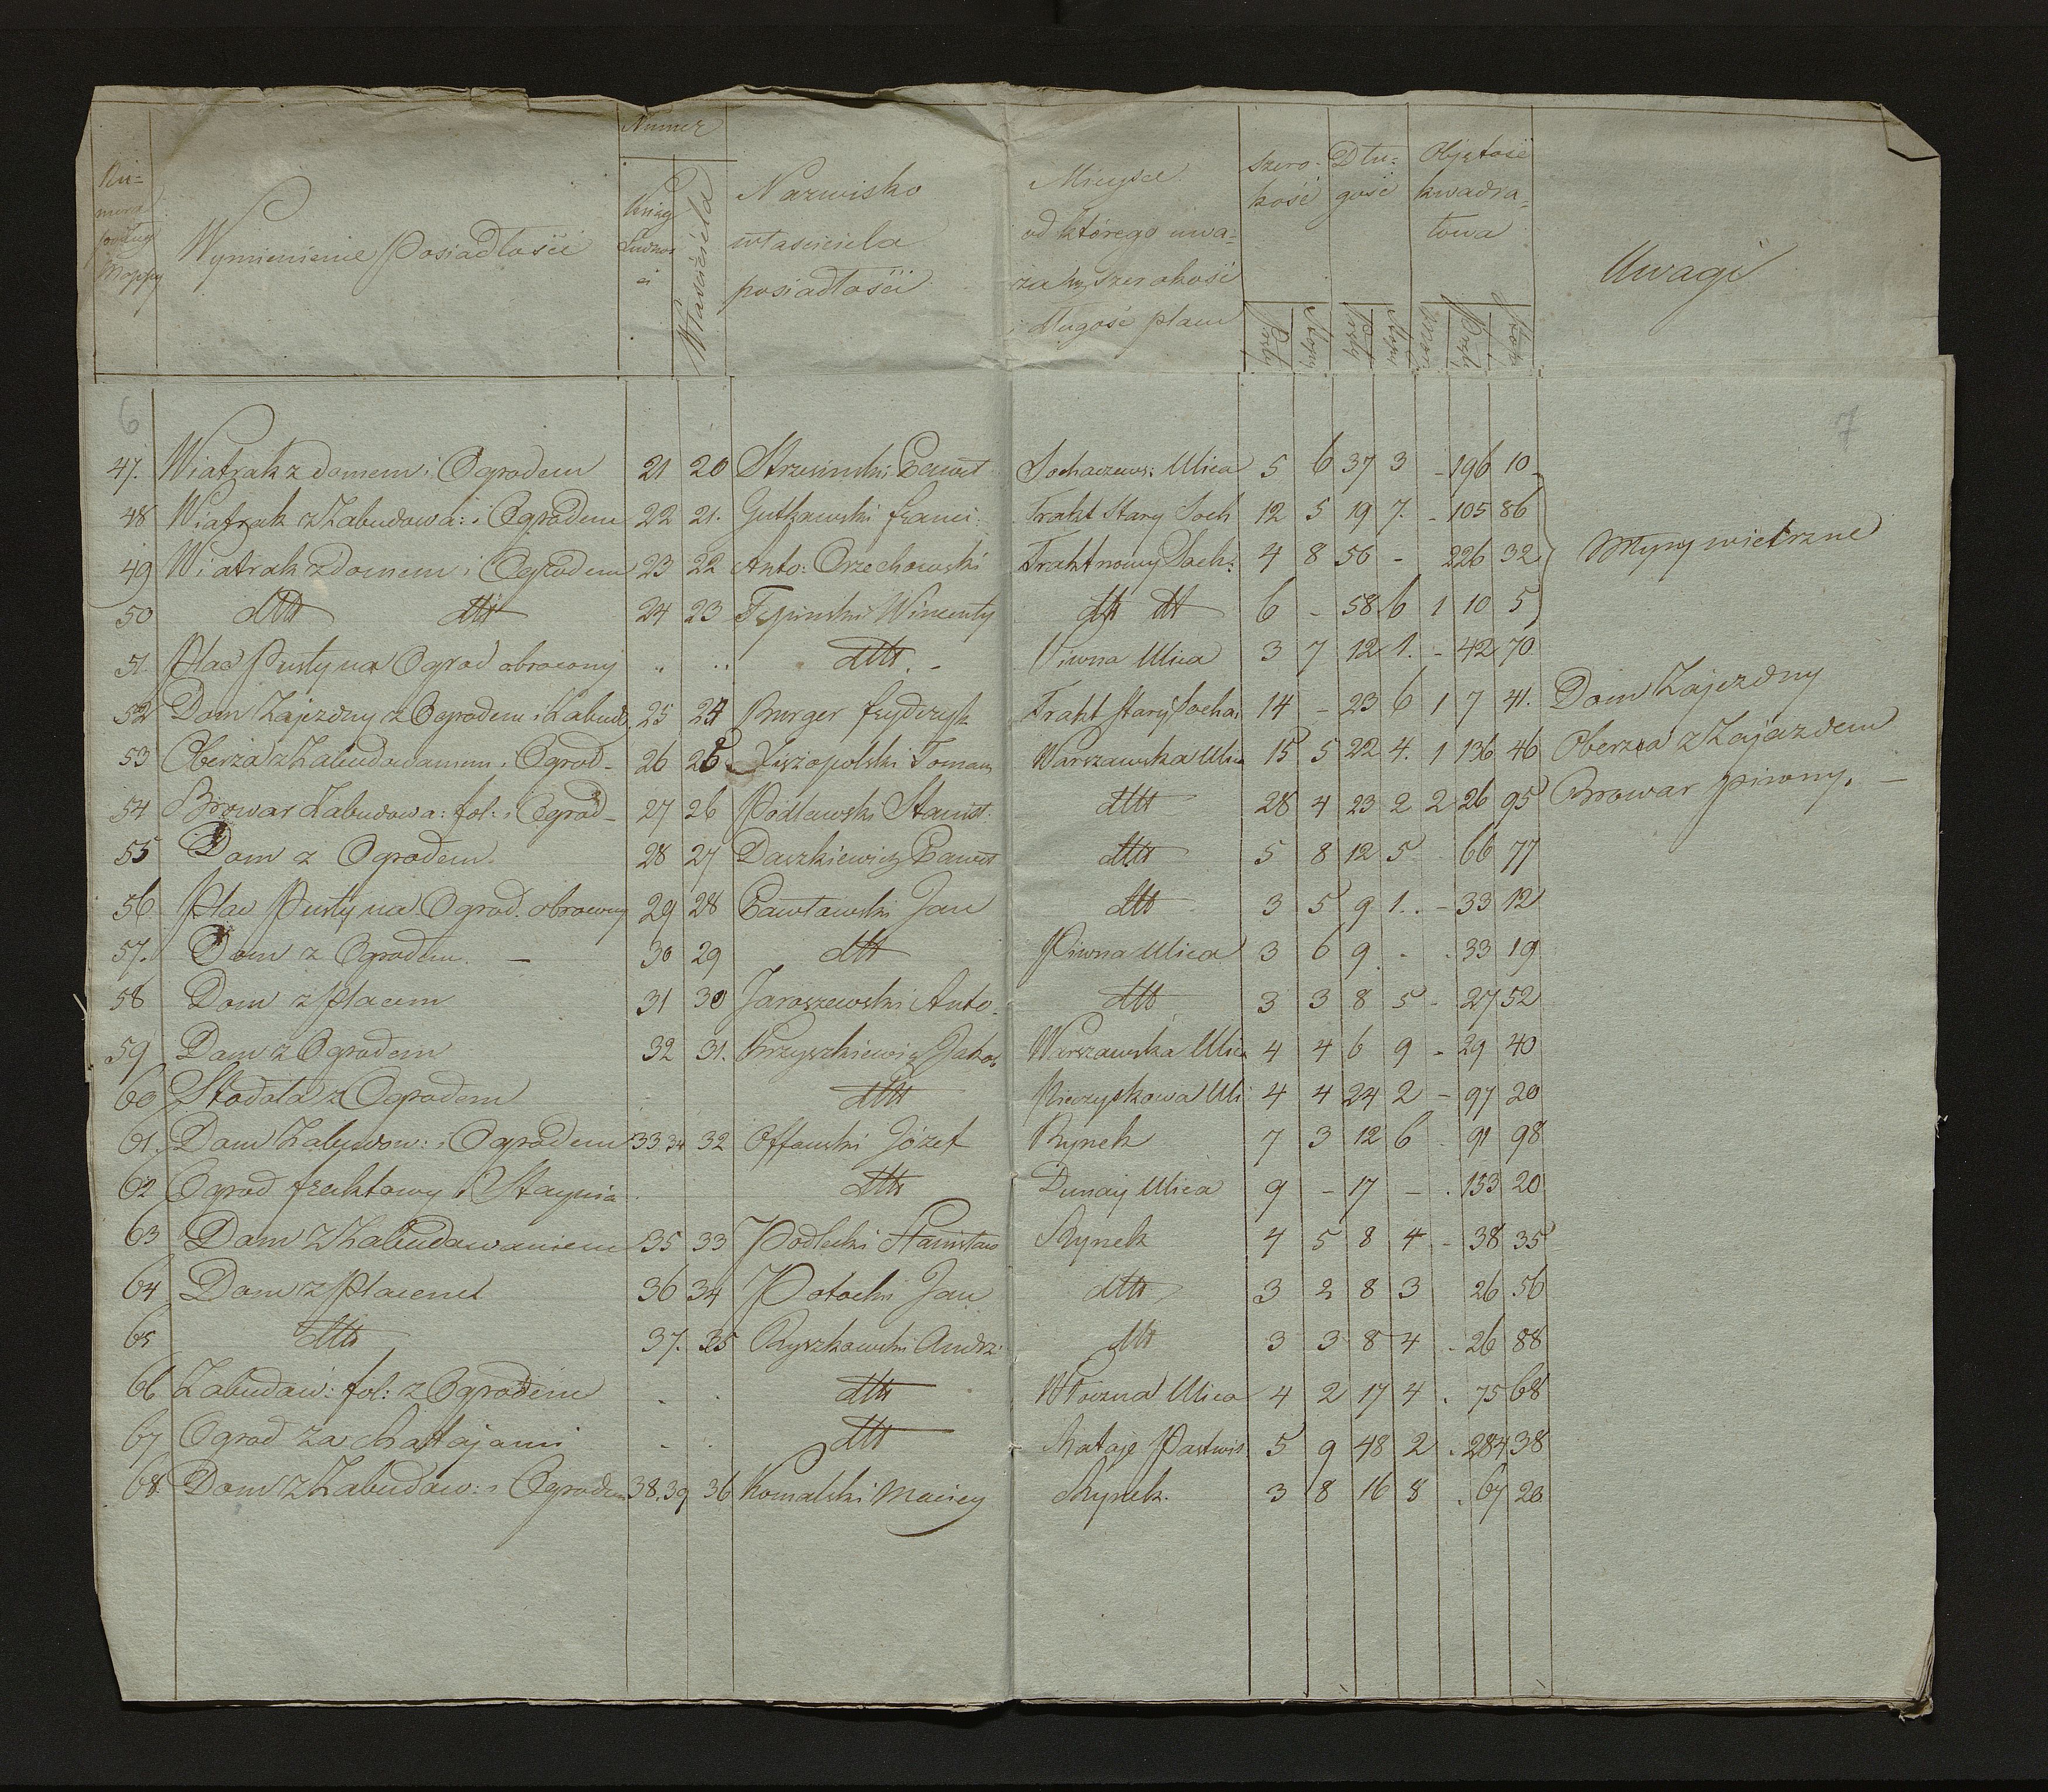 Numera podług Mappy | Wymienienie Posiadłości | Numer Księgi Ludności | Numer Właściciela | Nazwisko właściciela posiadłości | Mieysce od którego uważa się szerokość i długość placu | Szerokość Pręty | Długość Pręty | Objętość kwadratowa Pręty | Uwagi
6
7
47. Wiatrak z domem i Ogrodem 21 20 Paweł Sochaczews: Ulica 5 6 37 3 - 196 10
48 Wiatrak z Zabudowa: i Ogrodem 22 21. Gutkawski Franci. Trakt Stary Soch 12 5 19 7. - 105 86
49 Wiatrak z domem i Ogrodem 23 22 Anto: Orzechowski Trakt nowy Soch: 4 8 56 - 226 32 Młyny wietrzne
50 dtto dtto 24 23 Tępinski Wincenty dtt dtt 6 - 58 6 1 10 5
51. Plac Pusty na Ogrod obrocony " " dtto. - Piwna Ulica 3 7 12 1. - 42 70
52 Dom Zajezdny z Ogrodem i Zabud. 25 24 Burger Frydrryk Trakt Stary Socha: 14 - 23 6 1 7 41. Dom Zajezdny
53 Oberża z Zabudowaniem i Ogrod- 26 25 Tomasz Warszawska Ulica 15 5 22 4. 1 136 46 Oberza z Zajazdem
54 Browar Zabudowa: fol: i Ogrod- 27 26 Podlawski Stanisł. dtto 28 4 23 2 2 26 95 Browar piwny. -
55 Dom z Ogrodem. 28 27 Daszkiewicz Paweł dtto 5 8 12 5 66 77
56. Plac Pusty na Ogrod. obrocony 29 28 Pawławski Jan dtto 3 5 9 1. - 33 12
57. Dom z Ogrodem. - 30 29 dtto Piwna Ulica 3 6 9 . - . 33 19
58 Dom z Placem 31 30 Jaroszewski Anto. dtto 3 3 8 5 - 27 52
59 Dom z Ogrodem 32 31. Krzyszkiewicz Jakob Warszawska Ulica 4 4 6 9 - 29 40
60 Stodoła z Ogrodem dtto Uli 4 4 24 2 - 97 20
61. Dom Zabudow: i Ogrodem 33 34 32 Offawski Józef Rynek 7 3 12 6 . 91 98
62 Ogrod fruktowy i Staynia dtto Dunay Ulica 9 - 17 - . 153 20
63 Dom z Zabudowaniem 35 33 Podlecki Stanisław Rynek 4 5 8 4 - 38 35
64 Dom z Placem 36 34 Potocki Jan dtto 3 2 8 3 26 56
65 dtto 37. 35 Ryszkawski Andrz: dtt 3 3 8 4 . 26 88
66 Zabudow: fol: z Ogrodem . . dtto Ulica 4 2 17 4 . 75 68
67 Ogrod za Chattajami . . dtto 5 9 48 2 . 284 38
68. Dom z Zabudow: i Ogrodem 38. 39 36 Kowalski Maciey Rynek. 3 8 16 8 . 67 20